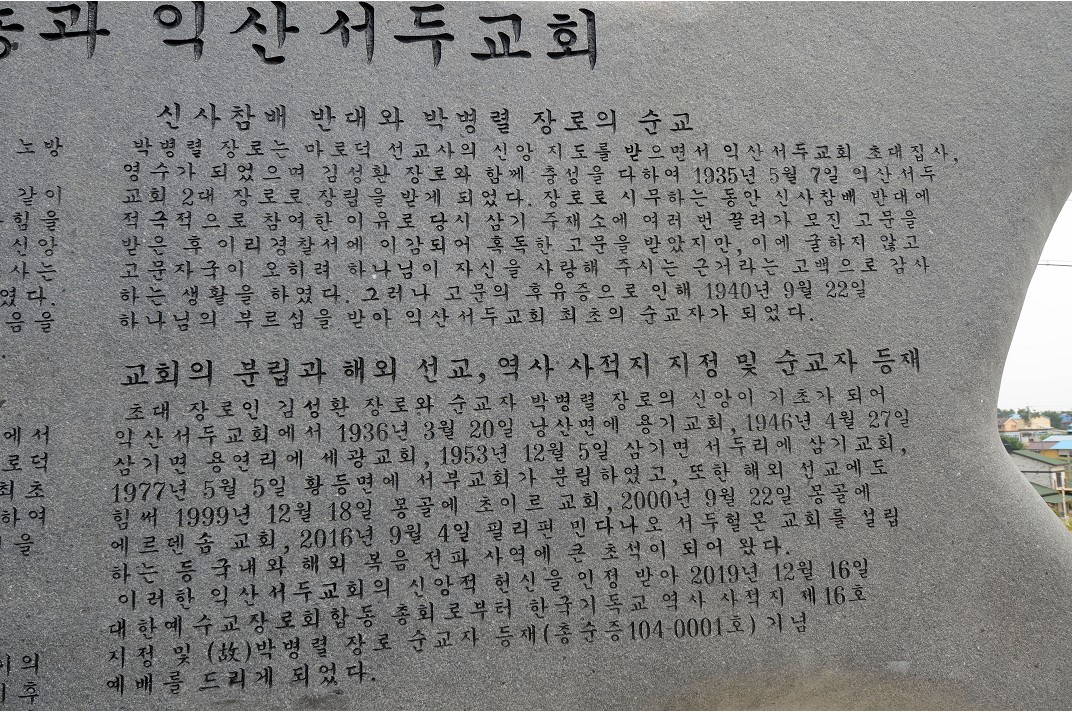 과 익산서두교회
신사참배 반대와 박병렬 장로의 순교
노방
박병렬 장로는 마로덕 선교사의 신앙 지도를 받으면서 익산서두교회 초대집사,
영수가 되었으며 김성환 장로와 함께 충성을 다하여 1935년 5월 7일 익산서두
같이
교회 2대 장로로 장립을 받게 되었다. 장로로 시무하는 동안 신사참배 반대에
힘을
적극적으로 참여한 이유로 당시 삼기 주재소에 여러 번 끌려가 모진 고문을
신앙
받은 후 이리경찰서에 이감되어 혹독한 고문을 받았지만, 이에 굴하지 않고
사는
고문자국이 오히려 하나님이 자신을 사랑해 주시는 근거라는 고백으로 감사
였다.
하는 생활을 하였다. 그러나 고문의 후유증으로 인해 1940년 9월 22일
음을
하나님의 부르심을 받아 익산서두교회 최초의 순교자가 되었다.
교회의 분립과 해외 선교, 역사 사적지 지정 및 순교자 등재
초대 장로인 김성환 장로와 순교자 박병렬 장로의 신앙이 기초가 되어
에서
익산서두교회에서 1936년 3월 20일 낭산면에 용기교회, 1946년 4월 27일
로덕
삼기면 용연리에 세광교회, 1953년 12월 5일 삼기면 서두리에 삼기교회,
최초
1977년 5월 5일 황등면에 서부교회가 분립하였고, 또한 해외 선교에도
하여
힘써 1999년 12월 18일 몽골에 초이르 교회, 2000년 9월 22일 몽골에
을
에르덴솜 교회, 2016년 9월 4일 필리핀 민다나오 서두헐몬 교회를 설립
하는 등 국내와 해외 복음 전파 사역에 큰 초석이 되어 왔다.
이러한 익산서두교회의 신앙적 헌신을 인정 받아 2019년 12월 16일
대한예수교장로회합동 총회로부터 한국기독교 역사 사적지 제16호
의
지정 및 (故)박병렬 장로 순교자 등재(총순증104-0001호) 기념
후
예배를 드리게 되었다.